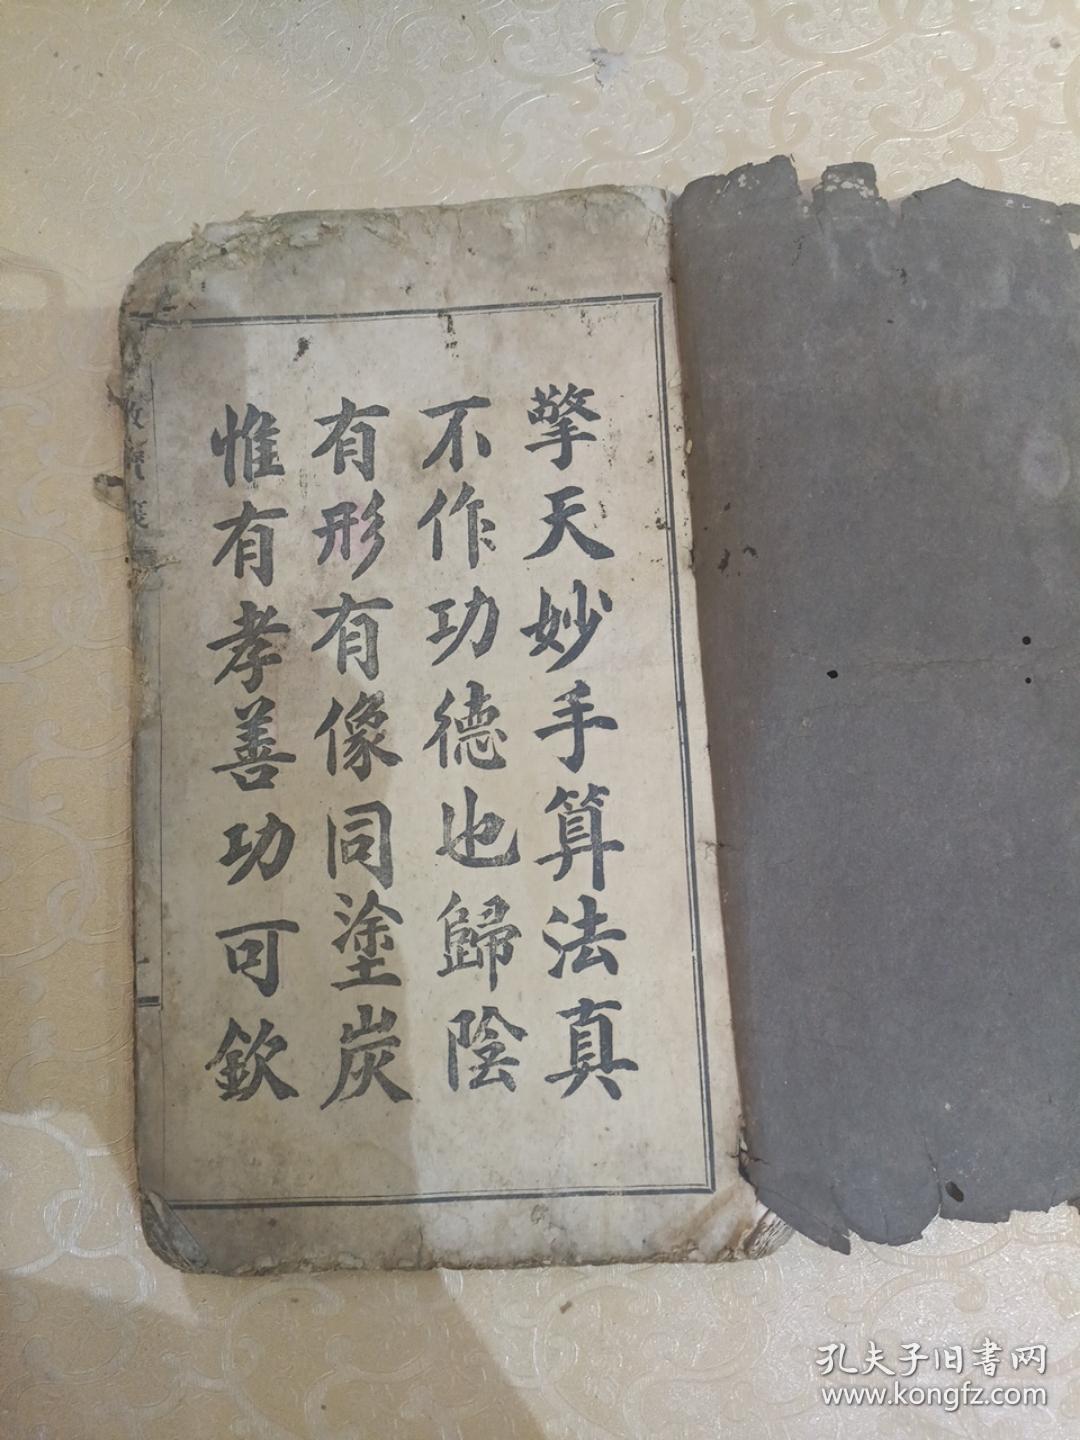 擎天妙手算法真
不作功德也歸陰
有形有像同塗炭
惟有孝善功可欽
孔夫子旧書网
www.kongfz.com